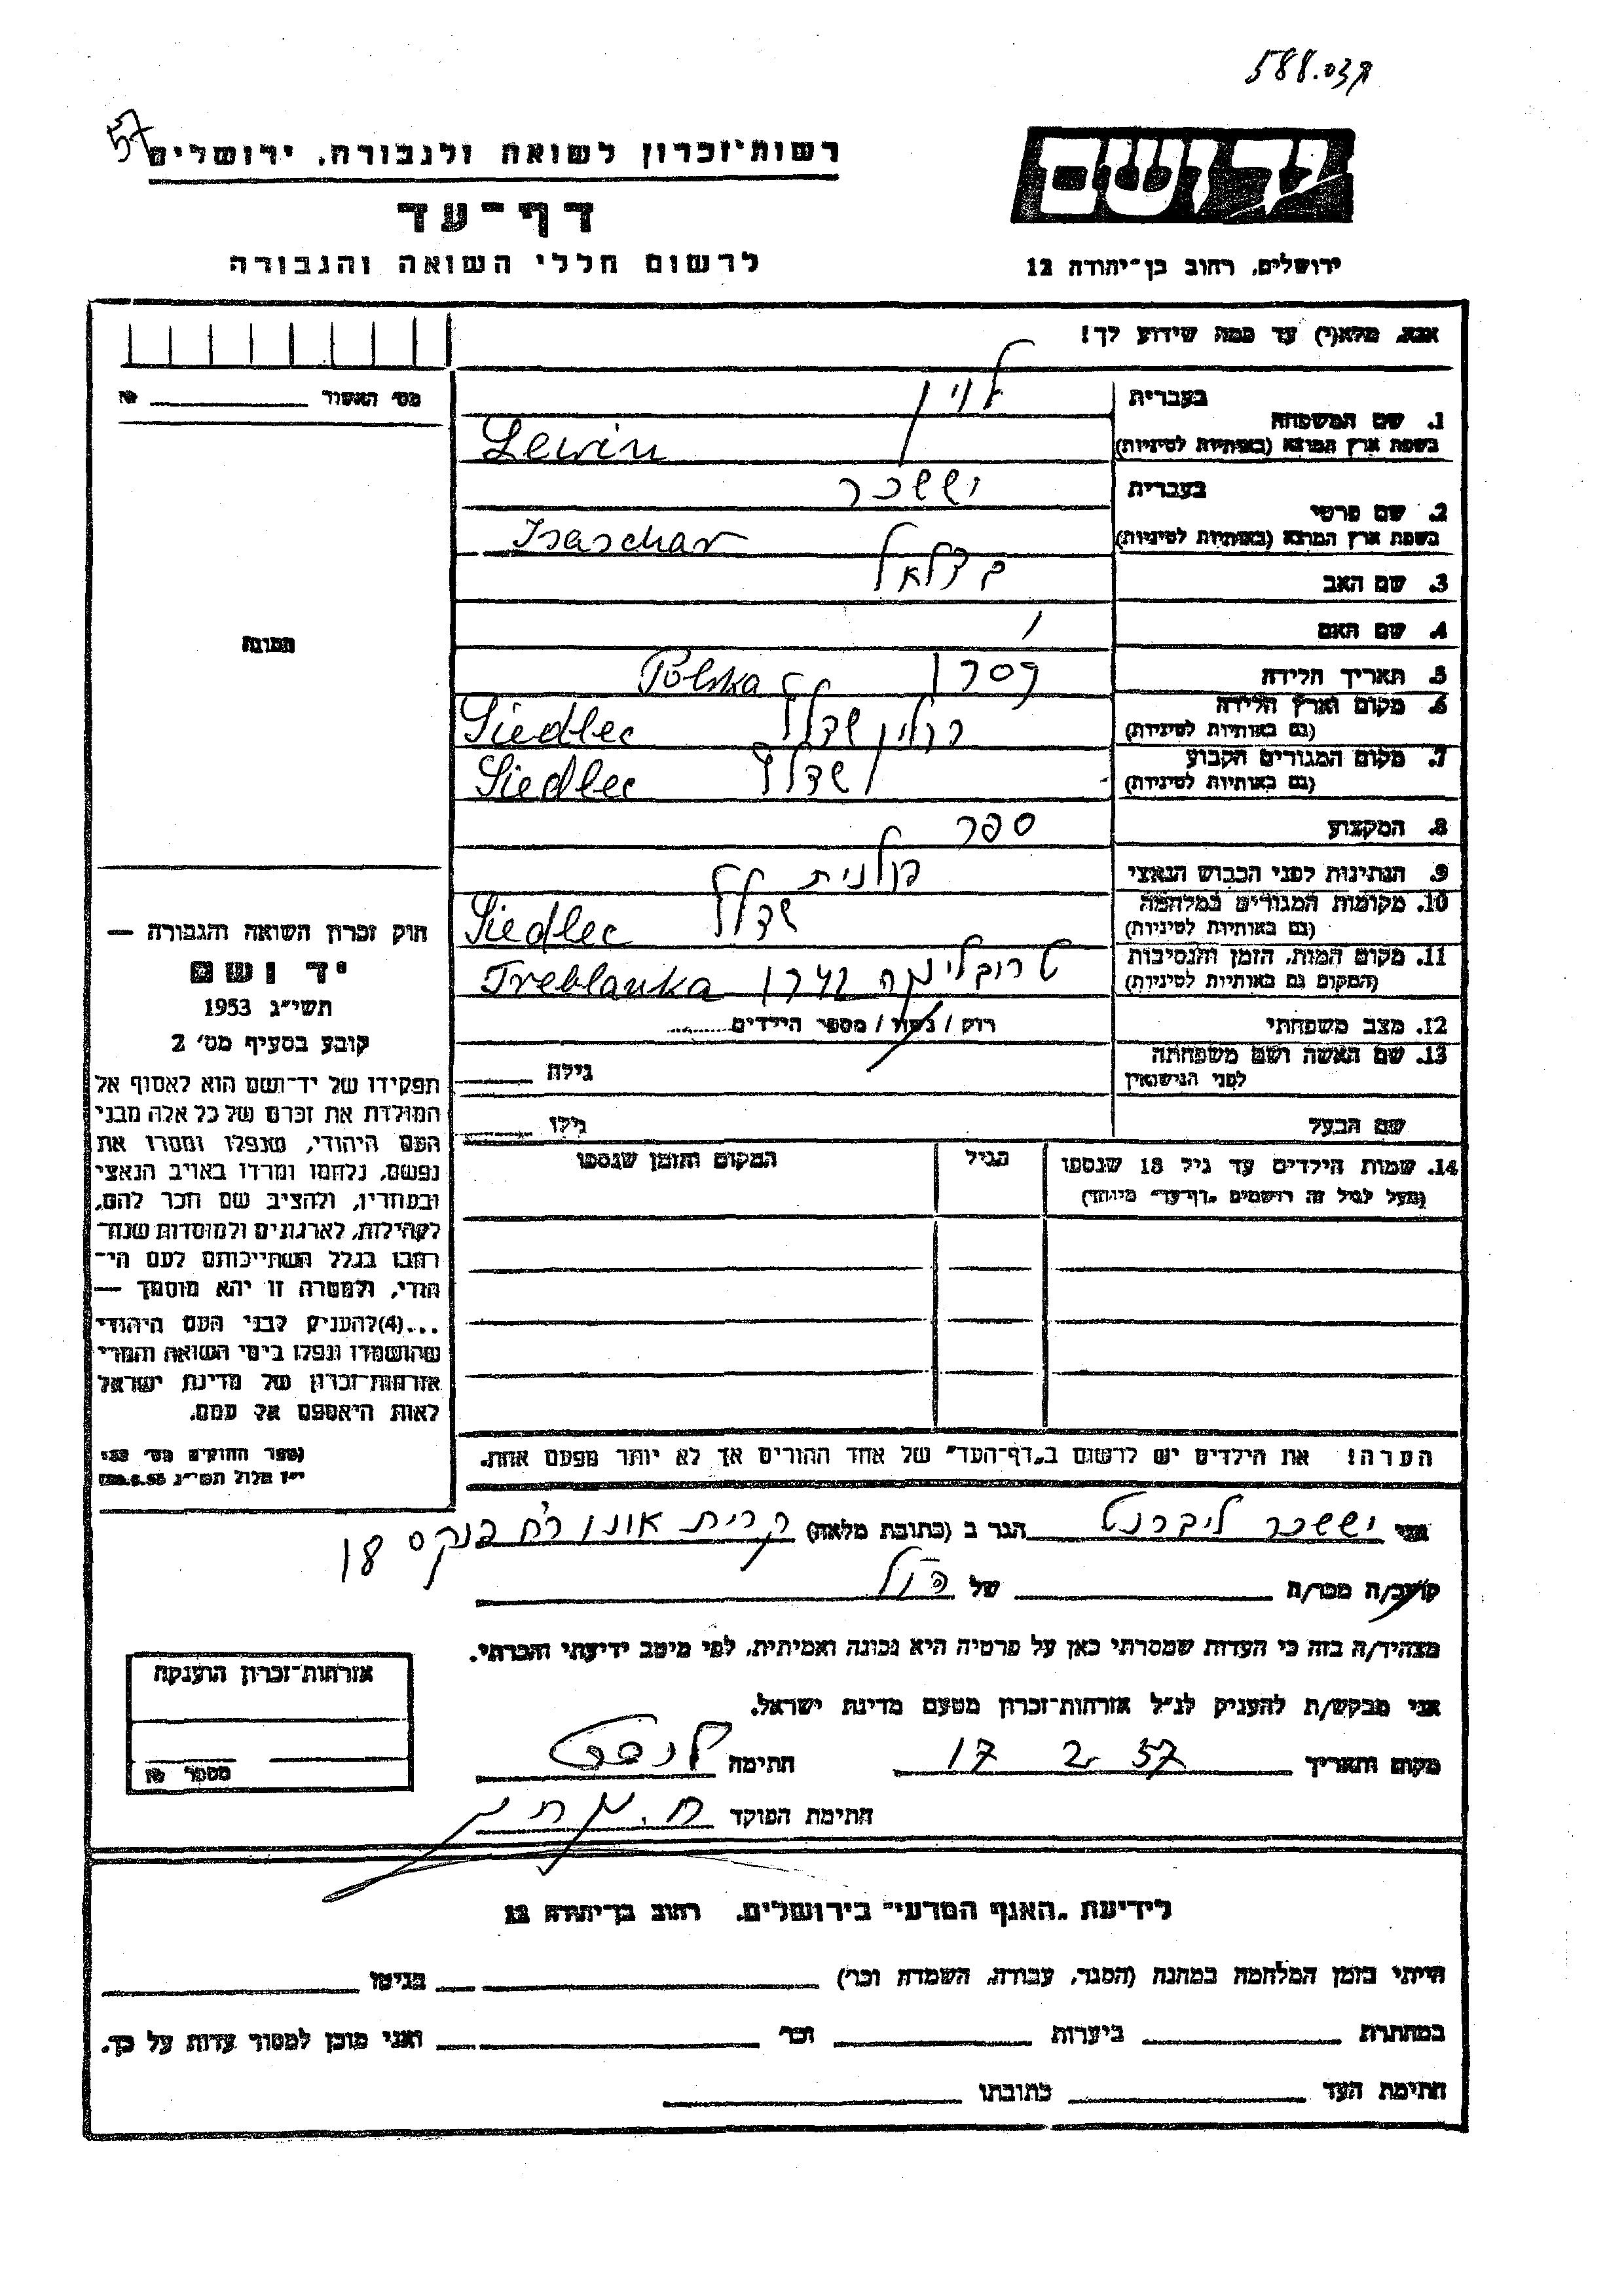 588.03ק
57
רשות־זכרון לשואה ולגבורה, ירושלים
יד ושם
דף־עד
לרשום חללי השואה והגבורה
ירושלים, רחוב בן־יהודה 12
אנא, מלא(י) עד כמה שידוע לך!
מס׳ האשור № 
1. שם המשפחה
בעברית
לוין
בשפת ארץ המוצא (באותיות לטיניות)
Lewin
2. שם פרטי
בעברית
יששכר
בשפת ארץ המוצא (באותיות לטיניות)
Isaschar
3. שם האב
בצלאל
4. שם האם
5. תאריך הלידה
Polska
6. מקום וארץ הלידה
(גם באותיות לטיניות)
פולין שדלץ Siedlec
7. מקום המגורים הקבוע
(גם באותיות לטיניות)
שדלץ Siedlec
8. המקצוע
ספר
9. הנתינות לפני הכבוש הנאצי
פולנית
10. מקומות המגורים במלחמה
(גם באותיות לטיניות)
שדלץ Siedlec
11. מקום המות, הזמן והנסיבות
(המקום גם באותיות לטיניות)
טרובלינקה 1942 Treblanka
12. מצב משפחתי
רוק / נשוי / מספר הילדים
13. שם האשה ושם משפחתה
לפני הנישואין
גילה
שם הבעל
גילו
14. שמות הילדים עד גיל 18 שנספו
(מעל לגיל זה רושמים „דף־עד״ מיוחד)
הגיל
המקום והזמן שנספו
הערה! את הילדים יש לרשום ב„דף־העד״ של אחד ההורים אך לא יותר מפעם אחת.
תמונה
חוק זכרון השואה והגבורה —
יד ושם
תשי״ג 1953
קובע בסעיף מס׳ 2
תפקידו של יד־ושם הוא לאסוף אל
המולדת את זכרם של כל אלה מבני
העם היהודי, שנפלו ומסרו את
נפשם, נלחמו ומרדו באויב הנאצי
ובעוזריו, ולהציב שם וזכר להם,
לקהילות, לארגונים ולמוסדות שנח־
רבו בגלל השתייכותם לעם הי־
הודי, ולמטרה זו יהא מוסמך —
...(4) להעניק לבני העם היהודי
שהושמדו ונפלו בימי השואה והמרי
אזרחות־זכרון של מדינת ישראל
לאות היאספם אל עמם.
(ספר החוקים מס׳ 132
י״ז אלול תשי״ג 28.8.53)
אני יששכר ליברנט הגר ב (כתובת מלאה) קרית אונו רח׳ פנקס 18
קרוב/ה מכר/ה של הנ״ל
מצהיר/ה בזה כי העדות שמסרתי כאן על פרטיה היא נכונה ואמיתית, לפי מיטב ידיעתי והכרתי.
אני מבקש/ת להעניק לנ״ל אזרחות־זכרון מטעם מדינת ישראל.
מקום ותאריך 17 2 57 חתימה
חתימת הפוקד
אזרחות־זכרון הוענקה
מספר №
לידיעת „האגף המדעי״ בירושלים, רחוב בן־יהודה 12
הייתי בזמן המלחמה במחנה (הסגר, עבודה, השמדה וכו׳) בגיטו
במחתרת ביערות וכו׳ ואני מוכן למסור עדות על כך.
חתימת העד כתובתו